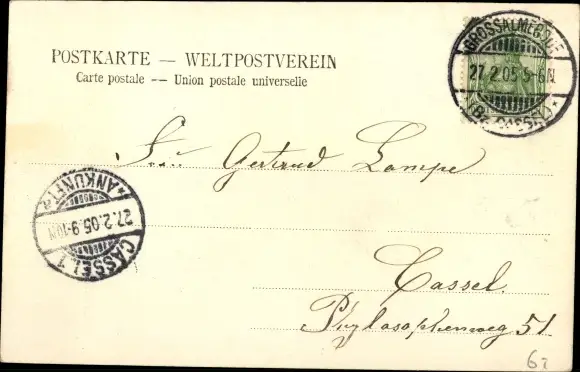 POSTKARTE — WELTPOSTVEREIN
Carte postale -- Union postale universelle
GROSSALMERODE
27.2.05.5-6N.
*(BZ. CASSEL)*
Gertrud Lampe
* ANKUNFT *
27.2.05.9-10N
CASSEL 1
Cassel.
Phylosophenweg 51.
62